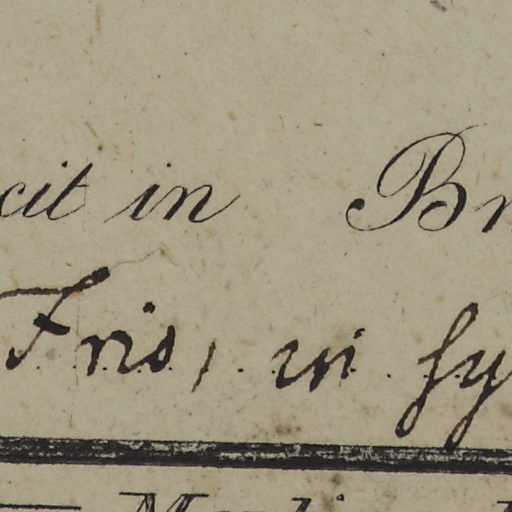 cit in Br
Fris, in hy